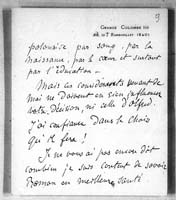 9
polonaise par sang, par la
naissance, par le cœur et surtout
par l'éducation —
Mais ces considérations venant de
moi ne doivent en rien influencer
votre décision, ni celle d'
J'ai confiance dans le choix
qu'il fera!
Je ne vous ai pas encore dit
combien je suis content de savoir
Roman en meilleure santé